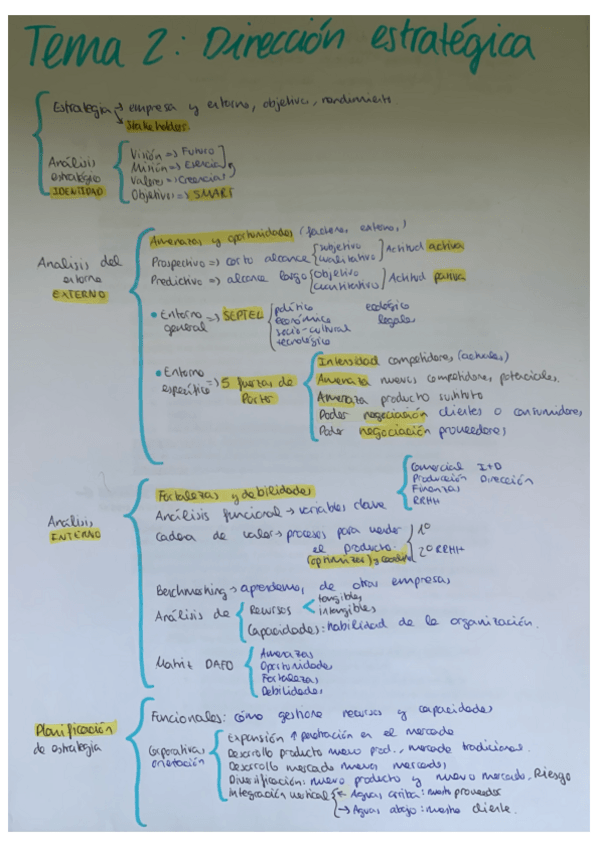 Tema 2: Dirección estratégica
Estrategia → empresa y entorno, objetivo, rendimiento
→ Stakeholders.
Análisis estratégico IDENTIDAD
Visión => Futuro
Misión => Esencia
Valores => Creencias
Objetivos => SMART
Analisis del entorno EXTERNO
Amenazas y oportunidades (factores externos)
Prospectivo => corto alcance { subjetivo cualitativo ] Actitud activa
Predictivo => alcance largo { objetivo cuantitativo ] Actitud pasiva
• Entorno general => SEPTEL
político ecológico
económico legales
socio-cultural
tecnológico
• Entorno específico => 5 fuerzas de Porter
Intensidad competidores (actuales)
Amenaza nuevos competidores, potenciales.
Amenaza producto sustituto
Poder negociasión clientes o consumidores
Poder negociación proveedores
Análisis INTERNO
Fortalezas y debilidades
Análisis funcional → variables clave
Comercial I+D
Producción Dirección
Finanzas
RRHH
Cadena de valor → procesos para vender el producto.
(optimizar) y coordinar
1º
2º RRHH
Benchmarking → aprendemos de otras empresas
Análisis de
Recursos < tangibles intangibles
Capacidades: habilidad de la organización.
Matriz DAFO
Amenazas
Oportunidades
Fortalezas
Debilidades
Planificación de estrategia
Funcionales: cómo gestiono recursos y capacidades
Corporativas orientación
Expensión ↑ penetración en el mercado
Desarrollo producto nuevo prod., mercado tradicional.
Desarrollo mercado nuevos mercados
Diversificación: nuevo producto y nuevo mercado. Riesgo
Integración vertical
← Aguas arriba: nuestro proveedor
→ Aguas abajo: nuestro cliente.